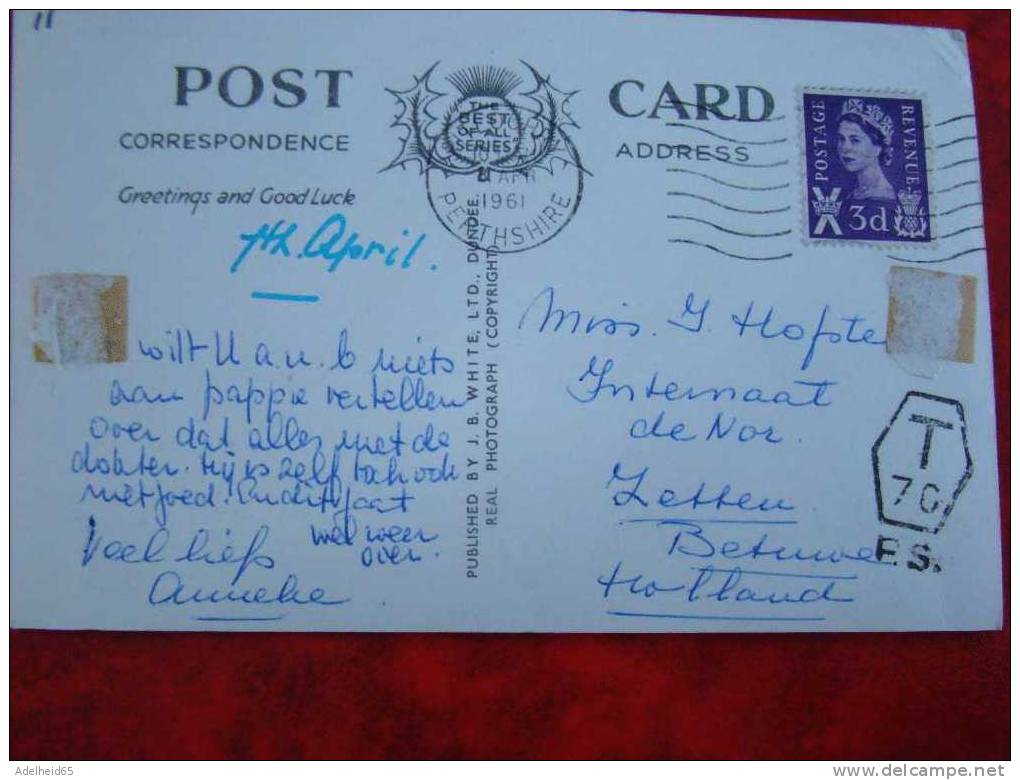 11
POST CARD
THE
BEST
OF ALL
SERIES
CORRESPONDENCE
ADDRESS
Greetings and Good Luck
APR
1961
PERTHSHIRE
POSTAGE
REVENUE
3d
7th. April.
wilt U a.u.b niets
aan pappie vertellen
over dat alles met de
dokter. Hij is zelf toch ook
niet goed. En dit gaat
wel weer
over.
Veel liefs
Anneke
PUBLISHED BY J. B. WHITE, LTD., DUNDEE.
REAL PHOTOGRAPH (COPYRIGHT)
Miss. J. Hofste
Internaat
de Nor.
Zetten
Betuwe
Holland
T
70
F.S.
Adelheid65
www.delcampe.net